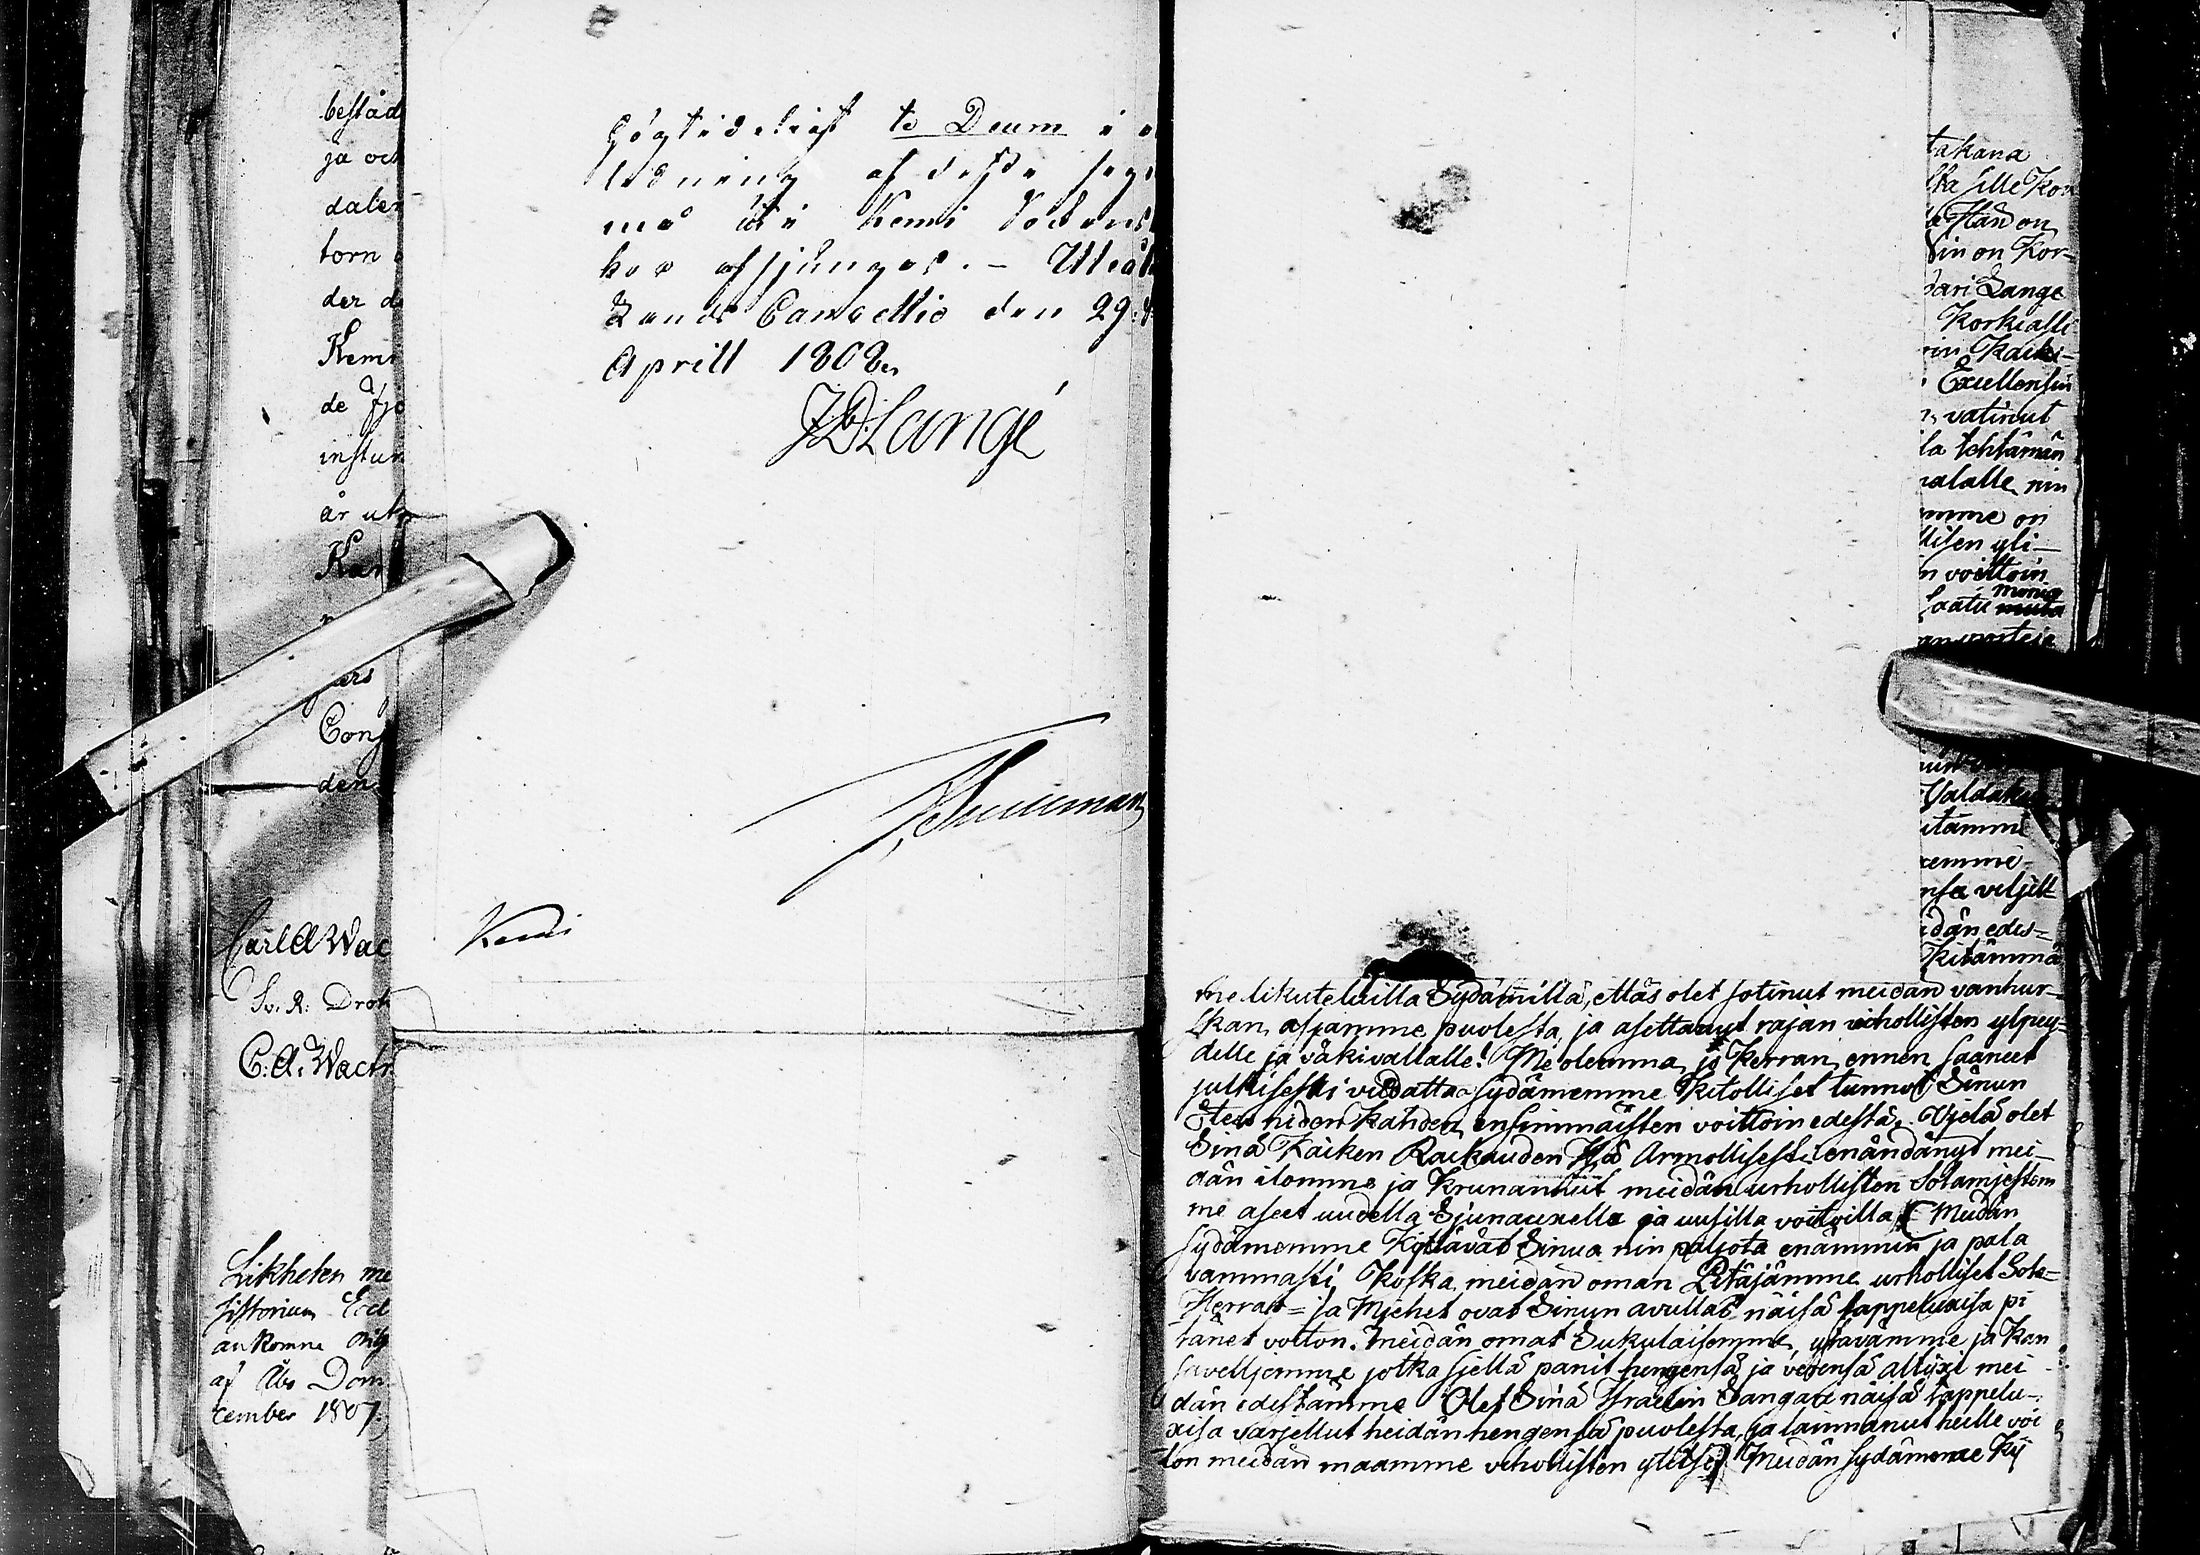 bestäd
ja och
daler
torn
der de
Kemi
de
instun
är utk
Kar
ars
Conf
den
Carl A Wac
Sv. R: Drott
C: A: Wacht
Likheten me
sistorium Eccl
ankomne
af Åbo Dom
cember 1807.
högtideligt te Deum i
ledning af desse seg
må uti Kemi Sockens
kor afsjungas. - Uleå
Lands Cancellie den 29:d
Aprill 1808.
JD Langé
Kemi
takana
sta sille Kor
on
sin on Kor=
dari Lange
Korkiasti
rin Kaiki-
Excellensin
vatinut
la tehtämän
valalle nin
mme on
llisen yli-
n voittoin
monia
saatu
Valdaku
itämme
remme-
nsa veljelt
idän edes=
Kitämmä
me likuteluilla Sydämillä, ettäs olet sotinut meidän vanhur-
skan asjamme puolesta, ja asettanut rajan vihollisten ylpey=
delle ja väkivallalle! Me olemma jo Kerran ennen saaneet
julkisesti vuodatta sydämemme Kitolliset tunnot Sinun
Etes niden Kahden ensimmäisten voittoin edestä. Vjelä olet
Sinä Kaiken Rackauden Isä Armollisesti enändänyt mei-
dän ilomme ja Krunannut meidän urhollisten Sotamjestem
me aseet uudella Siunauxella ja uusilla voitoilla (Meidän
sydämemme Kittävät Sinua nin paljota enämmin ja pala
vammasti, Koska meidän oman Pitäjämme urholliset Sota=
Herrat= ja Mjehet ovat Sinun avullas näisä tappeluxisa pi
tänet voiton. Meidän omat Sukulaisemme, ystävämme ja Kan
saveljemme jotka sjellä panit hengensä ja verensä alttixi mei
dän edestämme Olet Sinä Israelin Sangari näisä tappelu-
xisa varjellut heidän hengensä puolesta, ja lainnanut heille voi
ton meidän maamme vihollisten ylitse) Meidän sydämeme Kij